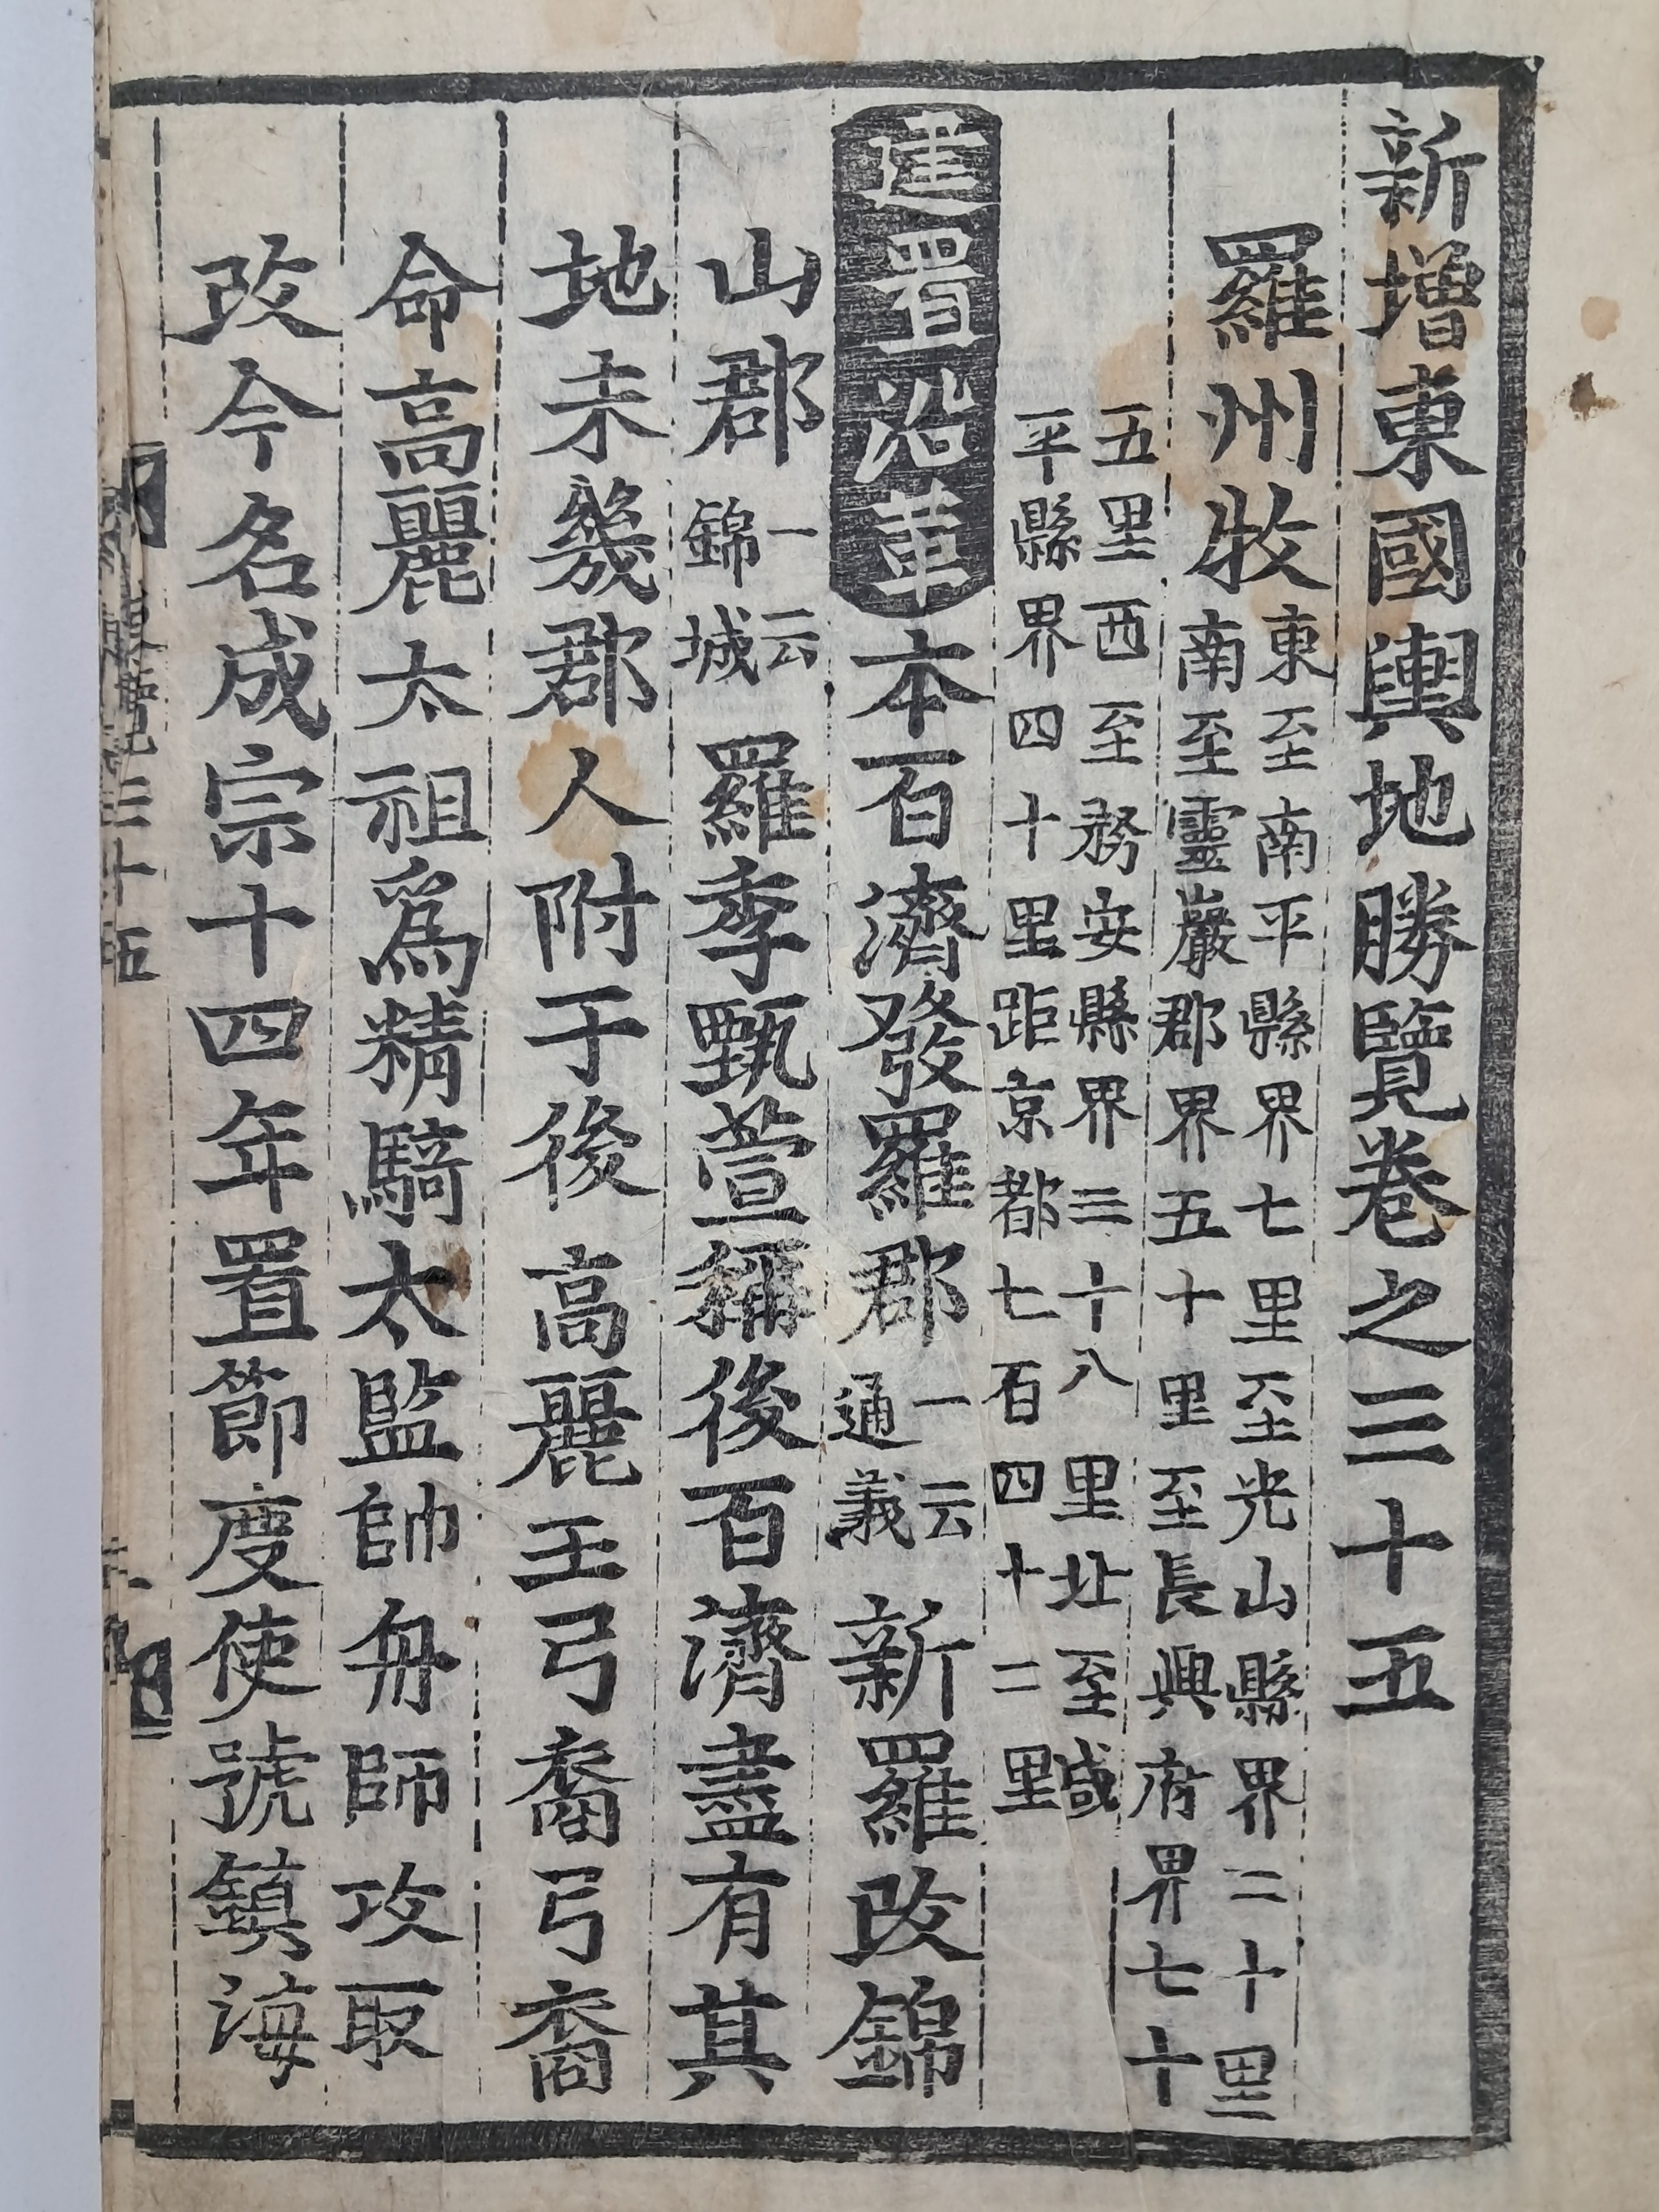 新增東國輿地勝覽卷之三十五
羅州牧
東至南平縣界七里至光山縣界二十里
南至靈巖郡界五十里至長興府界七十
五里西至務安縣界三十八里北至咸
平縣界四十里距京都七百四十二里
建置沿革本百濟發羅郡一云通義新羅改錦
山郡一云錦城羅季甄萱稱後百濟盡有其
地未幾郡人附于後高麗王弓裔弓裔
命高麗太祖爲精騎太監帥舟師攻取
改今名成宗十四年置節度使號鎭海
三十五